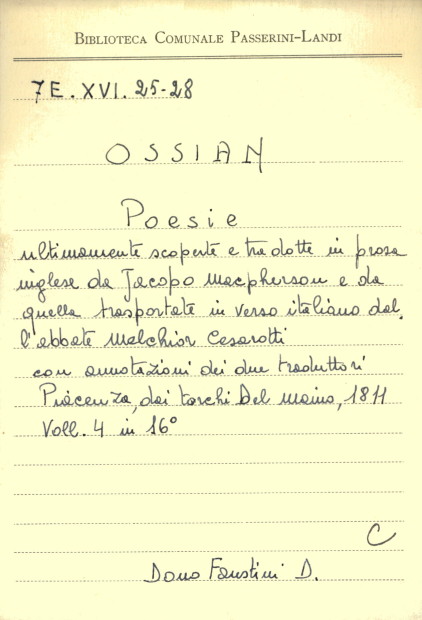 BIBLIOTECA COMUNALE PASSERINI-LANDI
7E. XVI. 25-28
OSSIAN
Poesie
ultimamente scoperte e tradotte in prosa
inglese da Jacopo Macpherson e da
quella trasportate in verso italiano dal.
l'abbate Melchior Cesarotti
con annotazioni dei due traduttori
Piacenza, dai torchi Del Maino, 1811
Voll. 4 in 16°
C
Dono Faustini D.